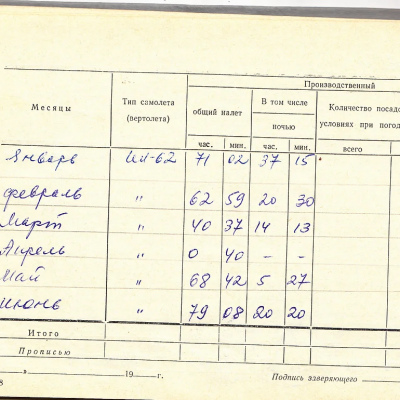 Производственный
Месяцы Тип самолета (вертолета) общий налет В том числе ночью Количество посадо
условиях при погод
час. мин. час. мин. всего
Январь Ил-62 71 02 37 15
февраль " 62 59 20 30
Март " 40 37 14 13
Апрель " 0 40 - -
Май " 68 42 5 27
июнь " 79 08 20 20
Итого
Прописью
" 19 г. Подпись заверяющего
8